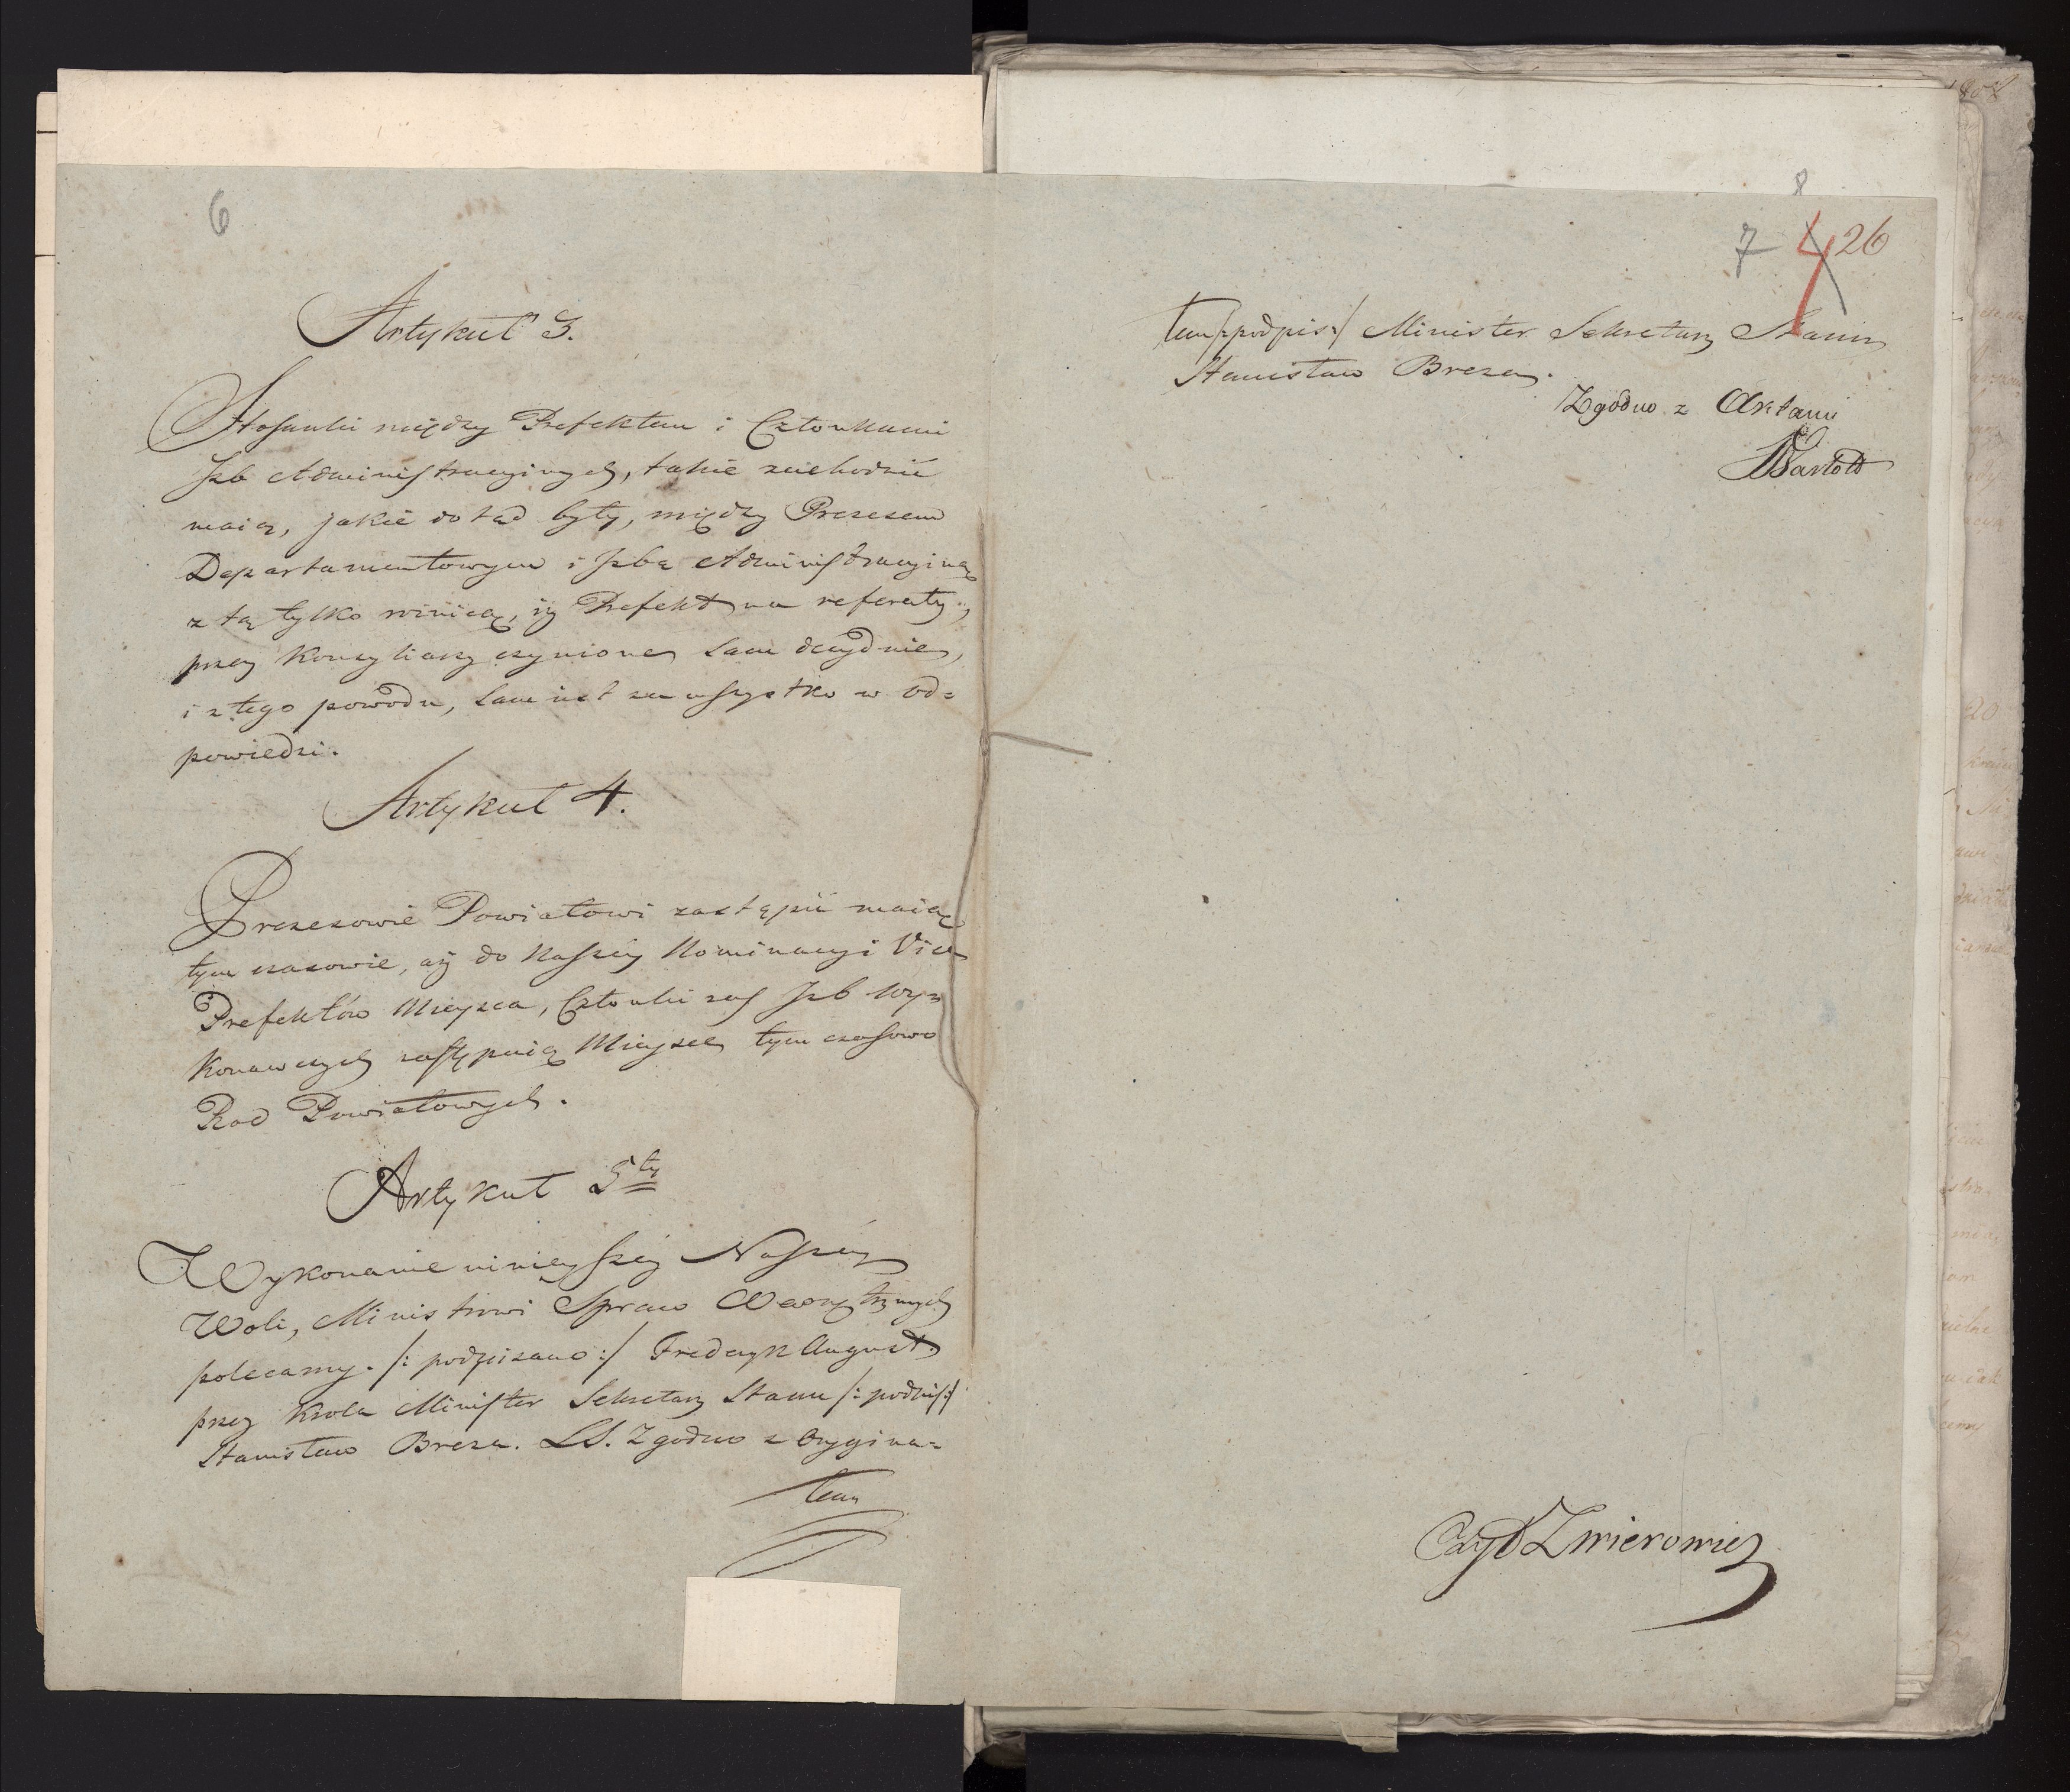 6
Artykuł 3.
Stosunki między Prefektem i Członkami
Jzb Administracyinych, takie zachodzić
maią, jakie dotąd były, między Prezesem
Departamentowym i Jzbą Administracyiną
z tą tylko rożnicą, iż Prefekt na referaty
przez Konsyliarzy czynione sam decyduie,
i z tego powodu, sam iest za wszystko w od=
powiedzi.
Artykuł 4.
Prezesowie Powiatowi zastąpić maią
tym czasowie, aż do Naszey Nominacyi Vice
Prefektów Mieysca, Członki zaś Jzb Wy=
konawczych zastępuią Mieysce tym czasowo
Rad Powiatowych.
Artykuł 5ty
Wykonanie ninieyszéy Naszéy
Woli, Ministrowi Spraw Wewnętrznych
polecamy. /: podpisano :/ Frederyk August
przez Krola Minister Sekretarz Stanu /: podpis :/
Stanisław Breza. LS. Zgodno z Orygina=
łem
8
7 4 26
łem /: podpis :/ Minister Sekretarz Stanu
Stanisław Breza.
Zgodno z Aktami
Czyt Zmierowicz